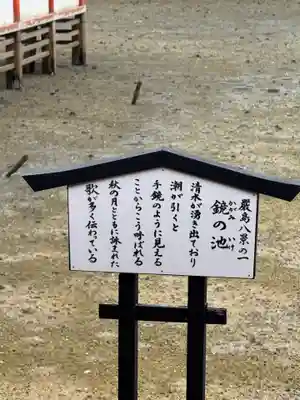 厳島八景の一
鏡の池
かがみ いけ
清水が湧き出ており
潮が引くと
手鏡のように見える
ことからこう呼ばれる
秋の月とともに詠まれた
歌が多く伝わっている